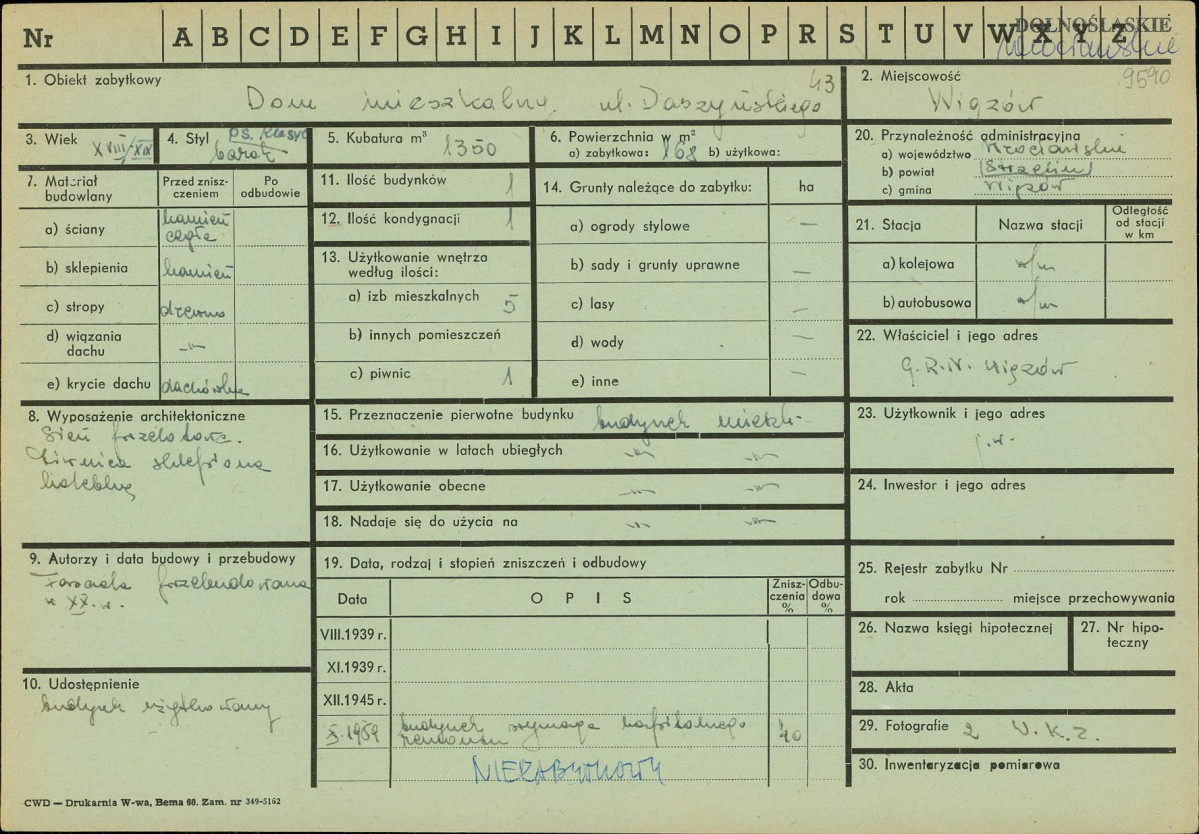 Nr A B C D E F G H I J K L M N O P R S T U V W X Y Z
DOLNOŚLĄSKIE
wrocławskie
9590
1. Obiekt zabytkowy
Dom mieszkalny, ul. Daszyńskiego 43
2. Miejscowość
Wiązów
3. Wiek XVIII/XIX
4. Styl ps. klasyc
barok
5. Kubatura m³ 1350
6. Powierzchnia w m²
a) zabytkowa: 168 b) użytkowa:
20. Przynależność administracyjna
a) województwo Wrocławskie
b) powiat Strzelin
c) gmina Wiązów
7. Materiał budowlany
Przed zniszczeniem
Po odbudowie
a) ściany kamień
cegła
b) sklepienia kamień
c) stropy drewno
d) wiązania dachu -"-
e) krycie dachu dachówka
11. Ilość budynków 1
12. Ilość kondygnacji 1
13. Użytkowanie wnętrza
według ilości:
a) izb mieszkalnych 5
b) innych pomieszczeń
c) piwnic 1
14. Grunty należące do zabytku: ha
a) ogrody stylowe —
b) sady i grunty uprawne —
c) lasy —
d) wody —
e) inne —
21. Stacja Nazwa stacji Odległość od stacji w km
a) kolejowa w/m
b) autobusowa w/m
22. Właściciel i jego adres
G.R.N. Wiązów
8. Wyposażenie architektoniczne
Sień przelotowa.
Piwnica sklepiona
kolebką
15. Przeznaczenie pierwotne budynku budynek mieszk.
16. Użytkowanie w latach ubiegłych -"- -"-
17. Użytkowanie obecne -"- -"-
18. Nadaje się do użycia na -"- -"-
23. Użytkownik i jego adres
j.w.
24. Inwestor i jego adres
9. Autorzy i data budowy i przebudowy
Fasada przebudowana
w XX w.
19. Data, rodzaj i stopień zniszczeń i odbudowy
Data OPIS Zniszczenia % Odbudowa %
VIII.1939 r.
XI.1939 r.
XII.1945 r.
X.1959 budynek wymaga kapitalnego
remontu 40
NIEZABYTKOWY
25. Rejestr zabytku Nr
rok miejsce przechowywania
26. Nazwa księgi hipotecznej
27. Nr hipoteczny
28. Akta
29. Fotografie 2 W.K.Z.
30. Inwentaryzacja pomiarowa
10. Udostępnienie
budynek użytkowany
CWD — Drukarnia W-wa, Bema 60. Zam. nr 349-5162